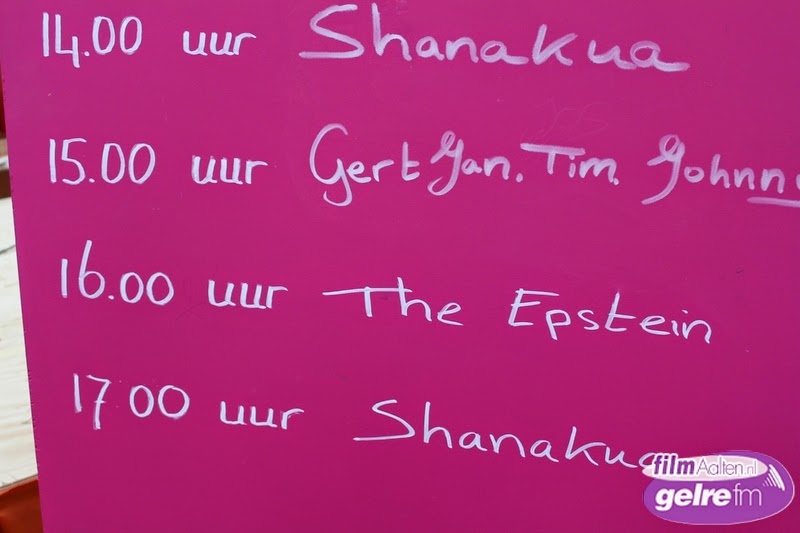 14.00 uur Shanakua
15.00 uur Gert Jan. Tim. Johnny
16.00 uur The Epstein
17 00 uur Shanakua
filmAalten.nl
gelre fm